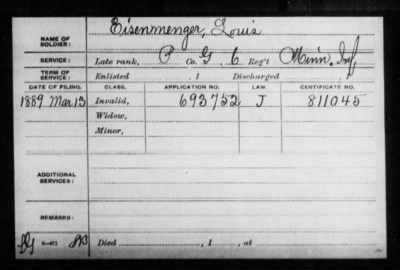 Eisenmenger, Louis
NAME OF
SOLDIER:
SERVICE: Late rank, P Co. G, 6 Reg't Minn. Inf
TERM OF
SERVICE: Enlisted , 1 Discharged , 1
DATE OF FILING. CLASS. APPLICATION NO. LAW. CERTIFICATE NO.
1889 Mar 13 Invalid, 693752 J 811045
Widow,
Minor,
ADDITIONAL
SERVICES:
REMARKS:
Died , 1 , at